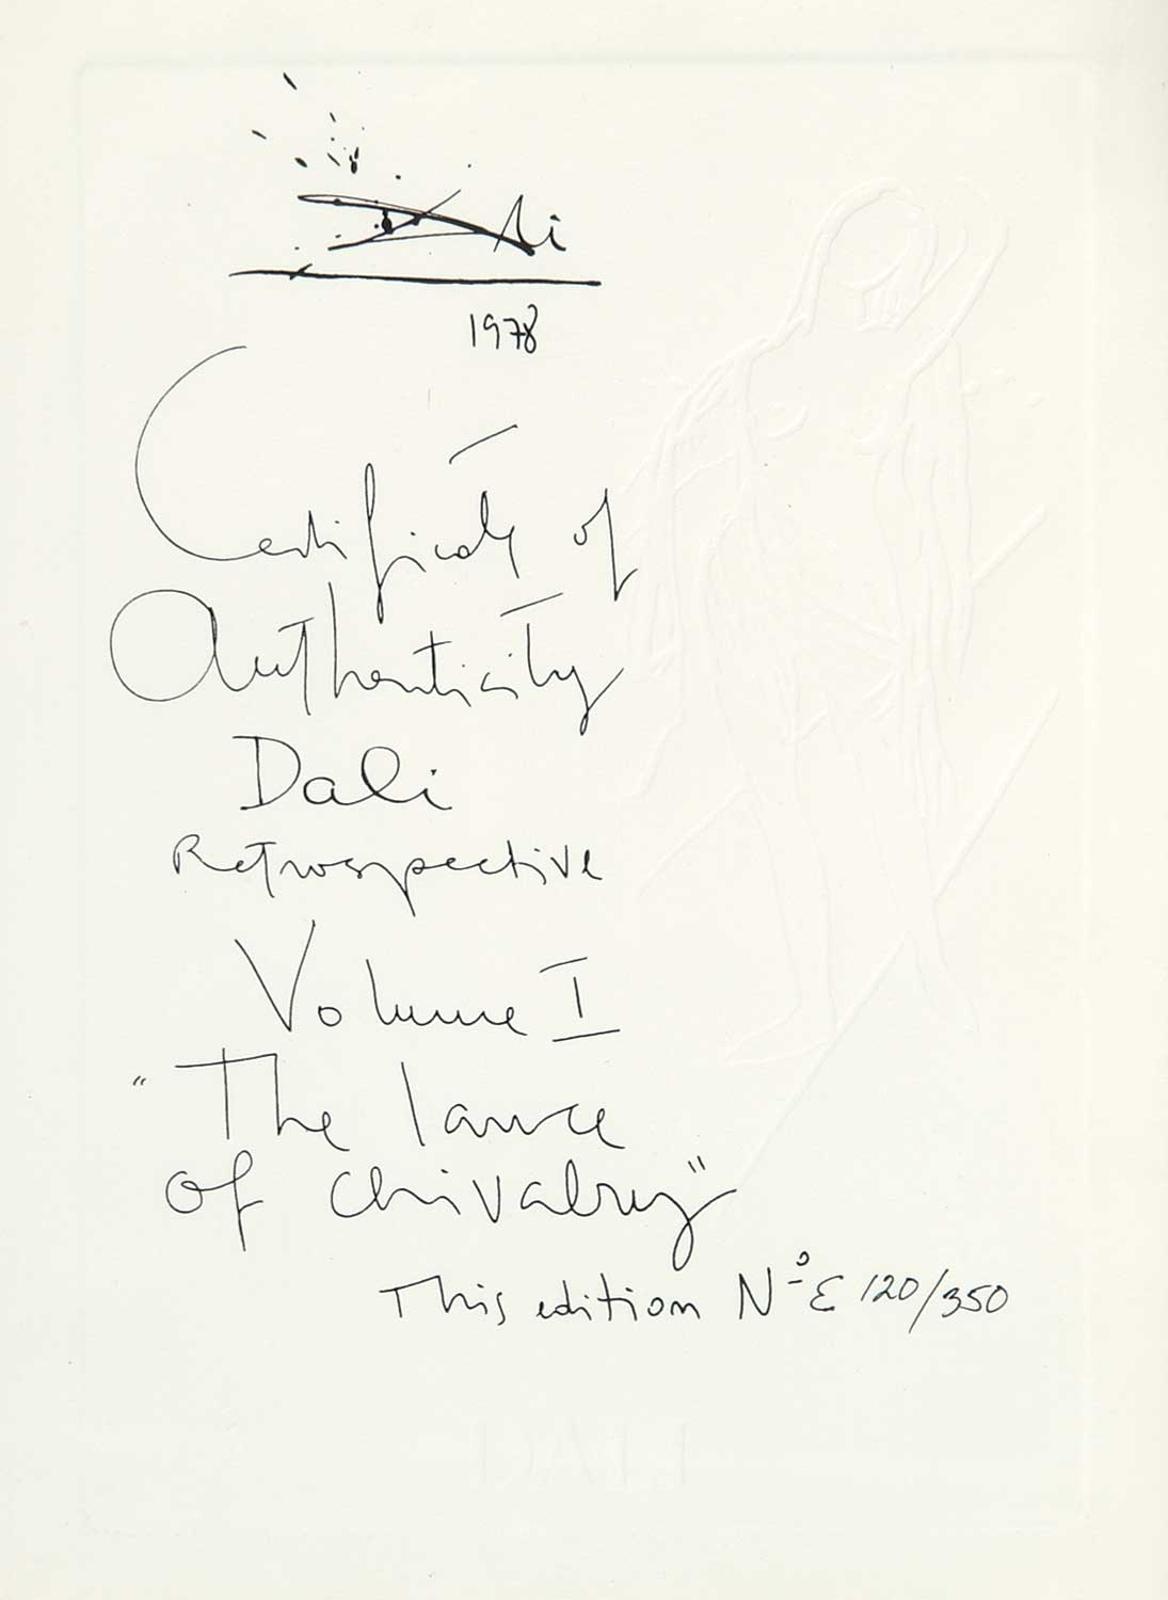 Dali
1978
Certificate of
Authenticity
Dali
Retrospective
Volume I
"The lance
of chivalry"
This edition Nº E 120/350